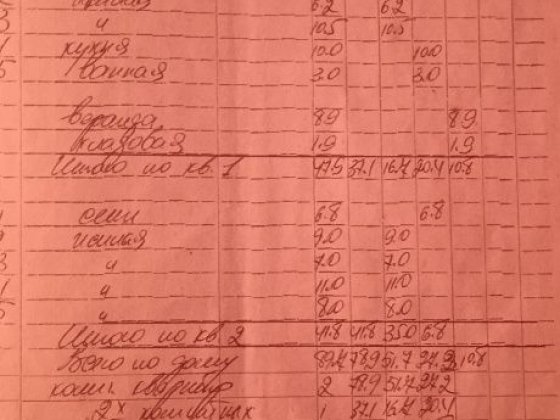 жилая 6.2 6.2
" 10.5 10.5
кухня 10.0 10.0
ванная 3.0 3.0
веранда 8.9 8.9
кладовая 1.9 1.9
Итого по кв. 1 47.9 37.1 16.7 20.4 10.8
сени 6.8 6.8
жилая 9.0 9.0
" 7.0 7.0
" 11.0 11.0
" 8.0 8.0
Итого по кв 2 41.8 41.8 35.0 6.8
Всего по дому 89.7 78.9 51.7 27.2 10.8
квартир 2 78.9 51.7 27.2
2х комнатных 1 37.1 16.7 20.4